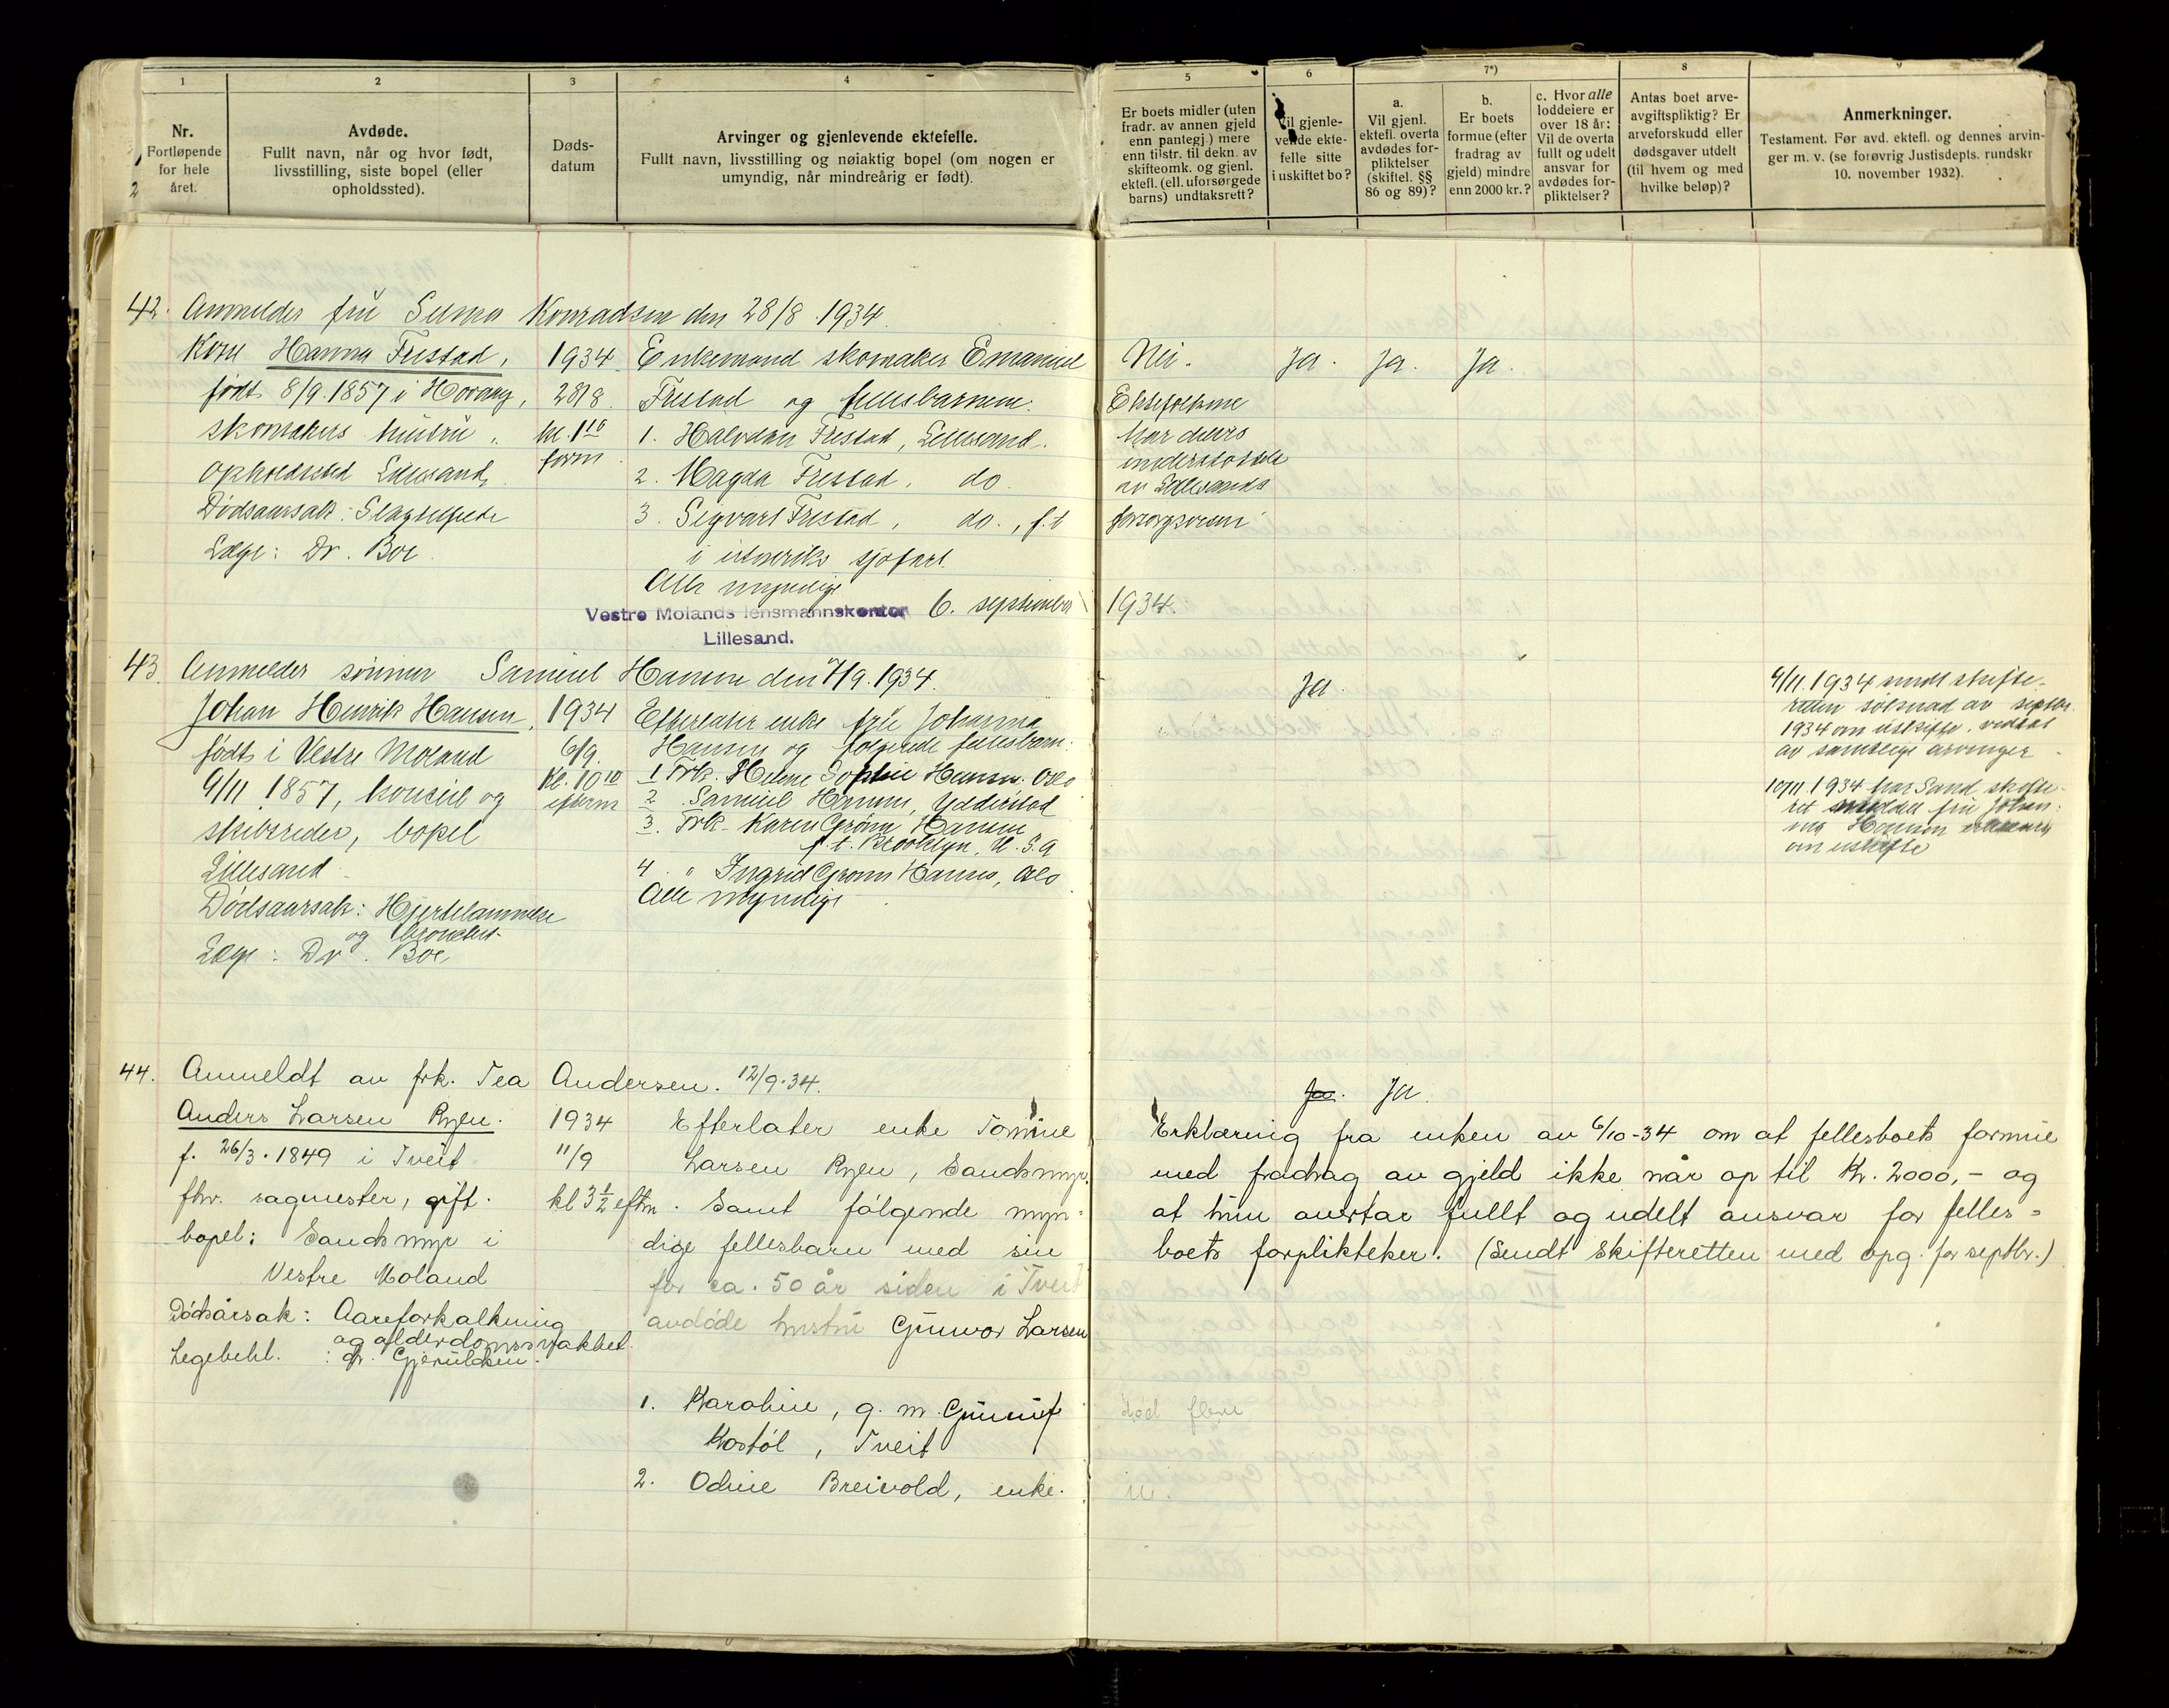 1
Nr.
Fortløpende
for hele
året.
2
Avdøde.
Fullt navn, når og hvor født,
livsstilling, siste bopel (eller
opholdssted).
3
Døds-
datum
4
Arvinger og gjenlevende ektefelle.
Fullt navn, livsstilling og nøiaktig bopel (om nogen er
umyndig, når mindreårig er født).
5
Er boets midler (uten
fradr. av annen gjeld
enn pantegj.) mere
enn tilstr. til dekn. av
skifteomk. og gjenl.
ektefl. (ell. uforsørgede
barns) undtaksrett?
6
Vil gjenle-
vende ekte-
felle sitte
i uskiftet bo?
7*)
a.
Vil gjenl.
ektefl. overta
avdødes for-
pliktelser
(skiftel. §§
86 og 89)?
b.
Er boets
formue (efter
fradrag av
gjeld) mindre
enn 2000 kr.?
c. Hvor alle
loddeiere er
over 18 år:
Vil de overta
fullt og udelt
ansvar for
avdødes for-
pliktelser?
8
Antas boet arve-
avgiftspliktig? Er
arveforskudd eller
dødsgaver utdelt
(til hvem og med
hvilke beløp)?
9
Anmerkninger.
Testament. Før avd. ektefl. og dennes arvin-
ger m. v. (se forøvrig Justisdepts. rundskr
10. november 1932).
42. Anmelder frū Selma Konradsen den 28/8 1934.
Kone Hanna Frestad,
født 8/9. 1857 i Hovaag,
skomakers hustru.
opholdssted Lillesand,
Dødsaarsak: Slagtilfelde
Læge: Dr. Boe.
1934
28/8.
kl. 1 10
form.
Enkemand skomaker Emanuel
Frestad og fellesbarnene:
1. Halvdan Frestad, Lillesand.
2. Magda Frestad, do.
3. Sigvart Frestad, do., f.t
i utenriks sjøfart.
Alle myndige
Nei. Ja. Ja. Ja.
Ektefolkene
har delvis
understøttet
av Lillesands
forsorgsvesen
Vestre Molands lensmannskontor 6. september 1934.
Lillesand.
43. Anmelder sønnen Samuel Hansen den 7/9. 1934.
Johan Henrik Hansen,
født i Vestre Moland
9/11 1857, konsul og
skibsreder, bopel
Lillesand.
Dødsaarsak: Hjertelammelse
og bronchit.
Læge: Dr. Boe
1934
6/9.
Kl. 10 10
efterm
Efterlater enke frū Johanna
Hansen og følgende fellesbarn:
1 Frk. Helene Sophie Hansen. Oslo
2 Samuel Hansen,
3. Frk. Karen Grönn Hansen
f. t. Brooklyn, U. S. A
4 " Ingrid Grönn Hansen, Oslo
Alle myndige
Ja.
9/11. 1934 sendt skifte-
retten søknad av septbr.
1934 om uskifte, vedtat
av samtlige arvinger.
10/11. 1934 har Sand skifte-
ret meddelt frū Johan-
na Hansen
om uskifte
44. Anmeldt av frk. Tea Andersen. 12/9.34.
Anders Larsen Ryen.
f. 26/3. 1849 i Tveit
fhv. sagmester, gift.
bopel: Sandsmyr i
Vestre Moland
Dødsårsak: Aareforkalkning
og alderdomssvakhet.
Legebehl. : dr. Gjeruldsen.
1934
11/9
kl 3 1/2 eftm.
Efterlater enke Tomine
Larsen Ryen, Sandsmyr.
Samt følgende myn-
dige fellesbarn med sin
for ca. 50 år siden i Tveit
avdøde hustru Gunvor Larsen
1. Karoline, g. m. Gunnuf
Kostøl, Tveit
2. Odine Breivold, enke.
Ja. Ja.
Erklæring fra enken av 6/10-34 om at fellesboets formue
med fradrag av gjeld ikke når op til Kr. 2000,- og
at hun overtar fullt og udelt ansvar for felles-
boets forplikteker. (Sendt Skifteretten med opg. for septbr.)